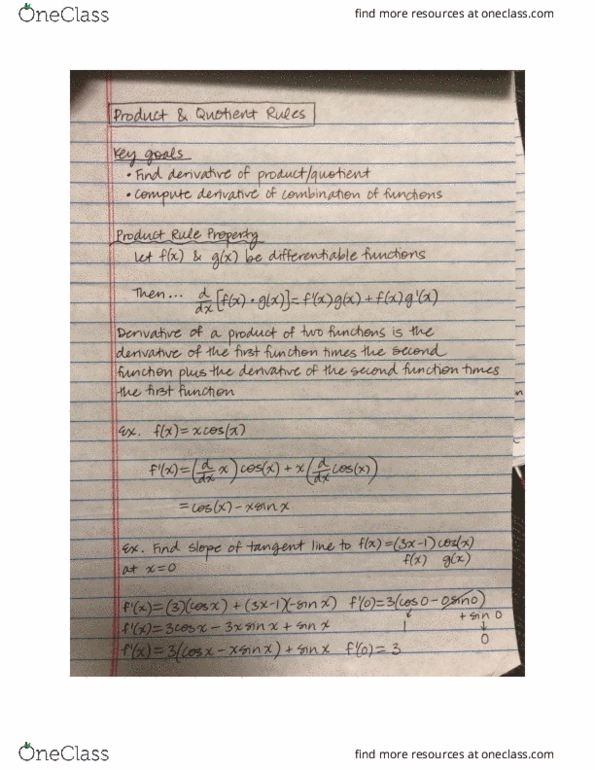 OneClass
find more resources at oneclass.com
Product & Quotient Rules
Key goals
• Find derivative of product/quotient
• Compute derivative of combination of functions
Product Rule Property
Let f(x) & g(x) be differentiable functions
Then... d/dx [f(x) · g(x)] = f'(x)g(x) + f(x)g'(x)
Derivative of a product of two functions is the
derivative of the first function times the second
function plus the derivative of the second function times
the first function
Ex. f(x) = xcos(x)
f'(x) = (d/dx x) cos(x) + x(d/dx cos(x))
= cos(x) - xsinx
Ex. Find slope of tangent line to f(x) = (3x-1)cos(x)
at x=0 f(x) g(x)
f'(x) = (3)(cosx) + (3x-1)(-sinx) f'(0) = 3(cos0 - 0sin0)
f'(x) = 3cosx - 3xsinx + sinx 1 + sin 0
0
f'(x) = 3(cosx - xsinx) + sinx f'(0) = 3
OneClass
find more resources at oneclass.com